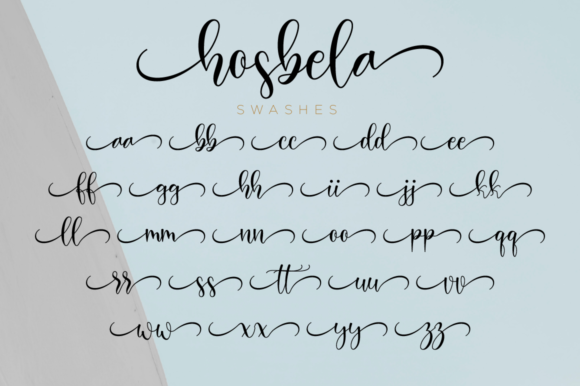 hosbela
SWASHES
aa bb cc dd ee
ff gg hh ii jj kk
ll mm nn oo pp qq
rr ss tt uu vv
ww xx yy zz